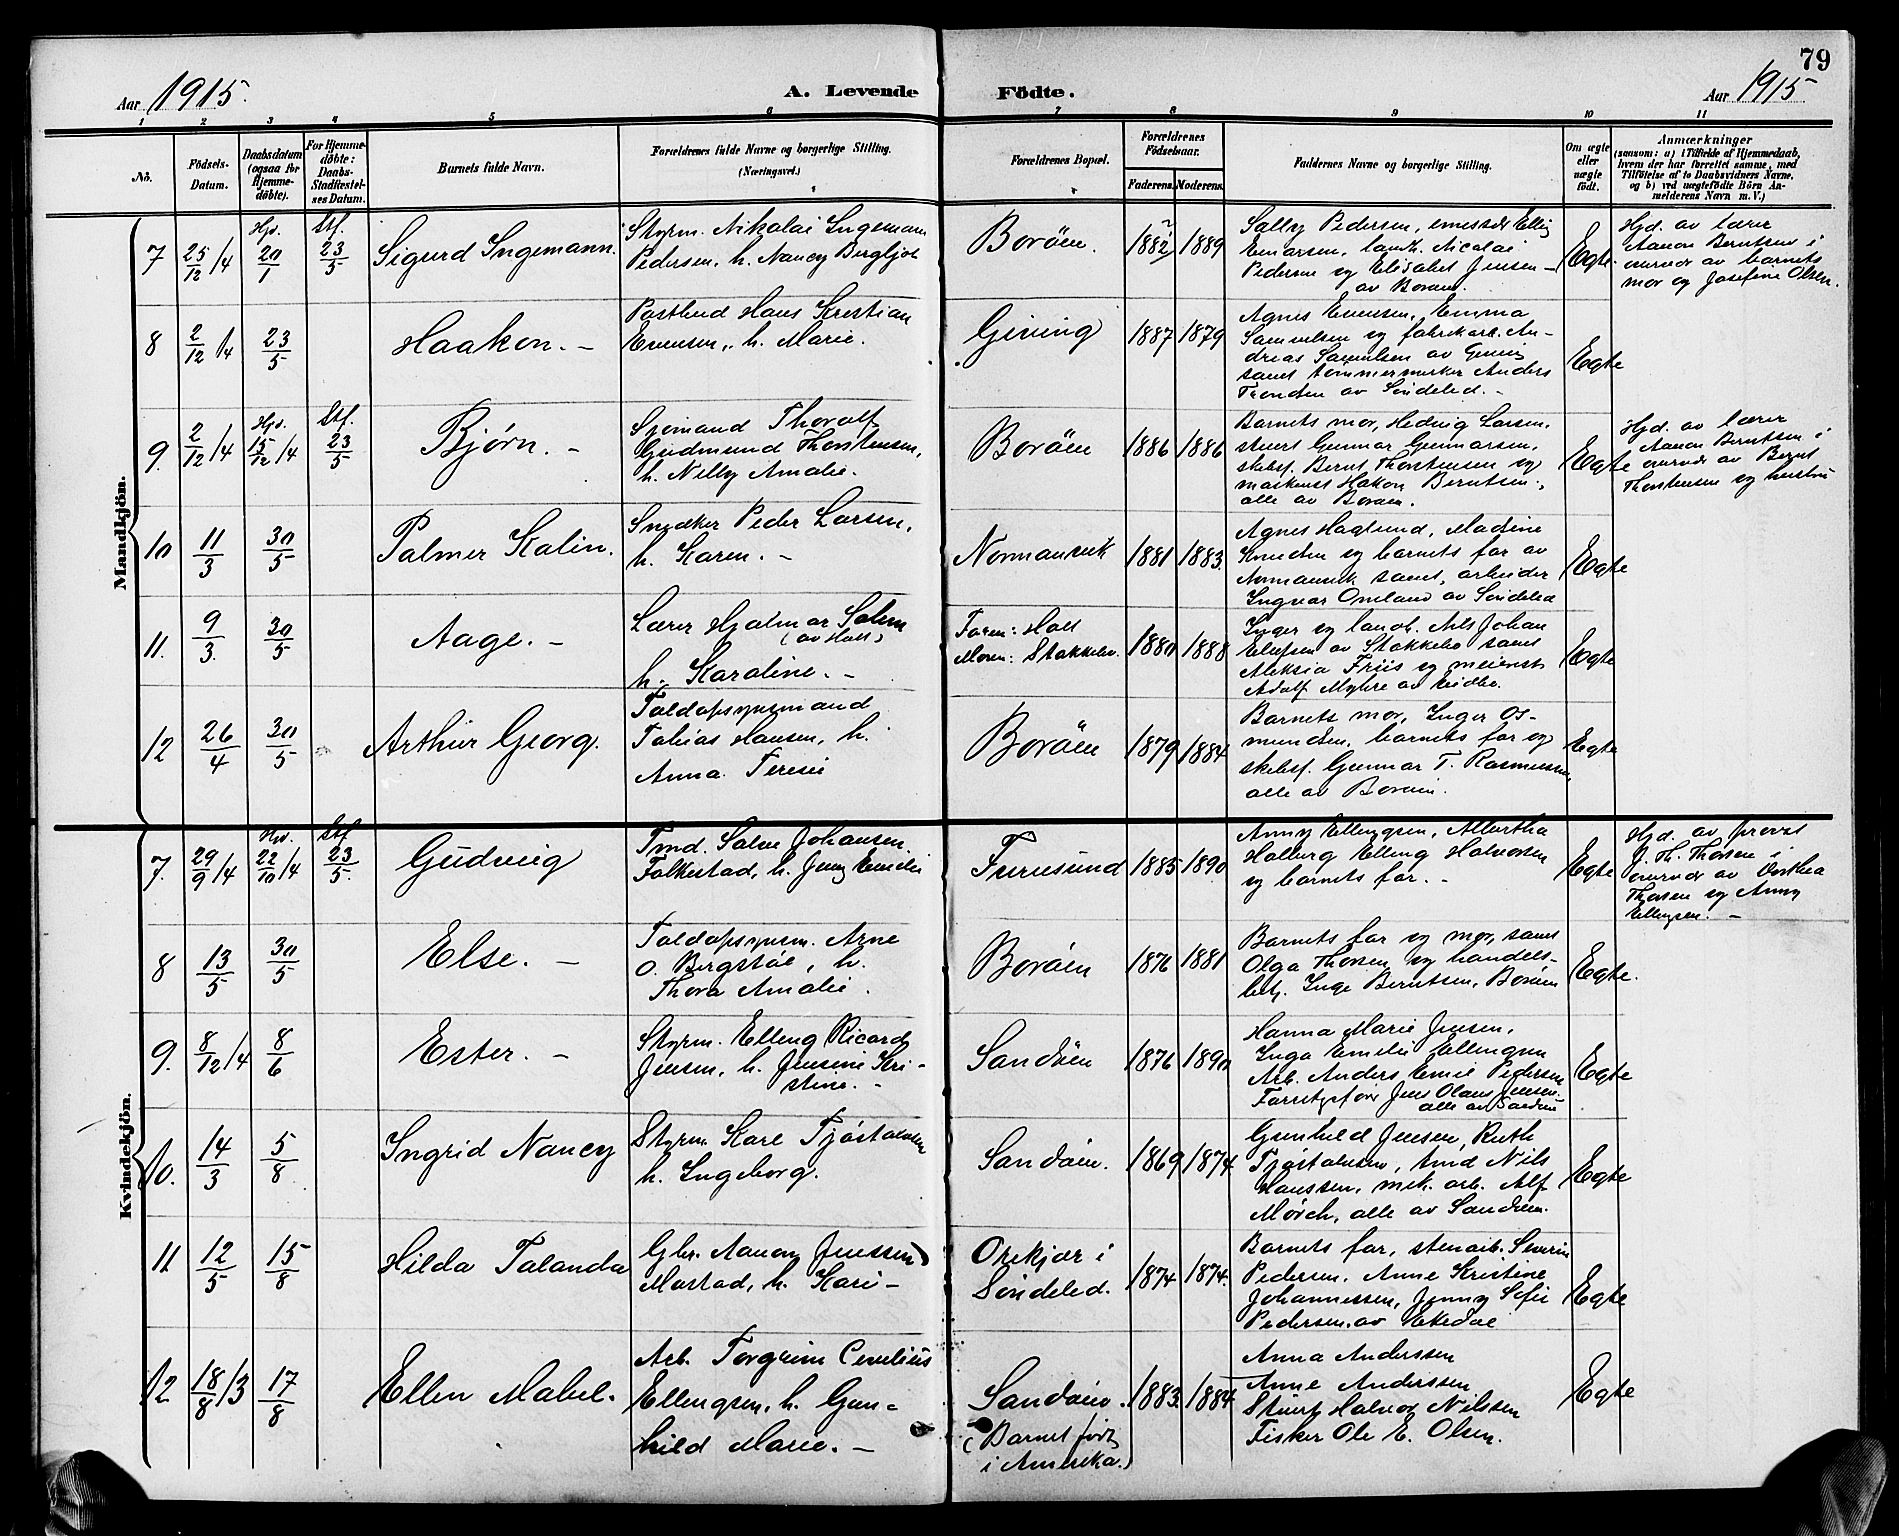 79
Aar 1915.
A. Levende Födte.
Aar 1915
1 2 3 4 5 6 7 8 9 10 11
No.
Födsels-Datum.
Daabsdatum (ogsaa for Hjemmedöbte).
For Hjemmedöbte: Daabs-Stadfæstelses Datum.
Barnets fulde Navn.
Forældrenes fulde Navne og borgerlige Stilling.
(Næringsvei.)
Forældrenes Bopæl.
Forældrenes Födselsaar.
Faderens. Moderens.
Faddernes Navne og borgerlige Stilling.
Om ægte eller uægte födt.
Anmærkninger
(saasom: a) i Tilfælde af Hjemmedaab, hvem der har forrettet samme, med Tilföielse af to Daabsvidners Navne, og b) ved uægtefödte Börn Anmelderens Navn m. V.)
Mandkjön.
7 25/12 /4 Hjd. 20/1 Stf. 23/5 Sigurd Ingemann.
Styrm. Nikolai Ingemann
Pedersen, h. Nancy Bergljot
Borøen. 1882 1889
Sally Pedersen,
Nicolai
Pedersen og Elisabet Jensen
av Borøen.
Egte.
Hjd. av lærer
Aanon Berntsen i
nærvær av barnets
mor og Josefine Olsen.
8 2/12 /4 23/5 Haakon. –
Postbud Hans Kristian
Evensen, h. Marie.
Giving 1887 1879
Agnes Evensen, Emma
Samuelsen og fabrikarb. An-
dreas Samuelsen av Giving
samt tömmermerker Anders
Trondsen av Söndeled. –
Egte
9. 2/12 /4 Hjd. 15/12 /4 Stf. 23/5 Bjørn. –
Sjömand Thoralf
Gudmund Thorstensen,
h. Nelly Amalie.
Borøen 1886 1886
Barnets mor, Hedvig Larsen,
stuert Gunnar Gunnarsen,
skibsf. Bernt Thorstensen og
maskinist Hakon Berntsen,
alle av Borøen.
Egte
Hjd. av lærer
Aanon Berntsen i
nærvær av Bernt
Thorstensen og hustru
10 11/3 30/5 Palmer Kalin.
Snedker Peder Larsen,
h. Karen. –
Normansvik 1881 1883.
Agnes Haglund, Madsine
Knudsen og barnets far av
Normansvik samt arbeider
Ingvar Omland av Söndeled
Egte
11. 9/3. 30/5 Aage. –
Lærer Hjalmar Salem
(av Holt)
h. Karoline. –
Faren: Holt
Moren: Stokkebo. 1880 1888
Inger og landh. Nils Johan
Olufsen av Stokkebo samt
Aleksia Friis og meierist
Adolf Myhre av
Egte
12 26/4 30/5 Arthur Georg.
Toldopsynsmand
Tobias Hansen, h.
Anna Teresie
Borøen 1879 1884
Barnets mor, Inger Os-
mundsen, barnets far og
skibsf. Gunnar T. Rasmussen
alle av Borøen.
Egte
Kvindekjön.
7. 29/9 /4 Hjd. 22/10 /4 Stf 23/5. Gudveig
Tmd. Salve Johansen
Falkestad, h. Jenny Emelie
Furuesund 1885 1890
Anny Ellingsen, Albertha
Halberg Elling Halvorsen
og barnets far. –
Egte
Hjd. av provst
J. Th. Thorsen i
nærvær av Dorthea
Thorsen og Anny
Ellingsen. –
8 13/5 30/5 Else. –
Toldopsynsm. Arne
O. Bergstøl, h.
Thora Amalie.
Borøen 1876 1881
Barnets far og mor, samt
Olga Thorsen, og handels-
betj. Inge Berntsen, Borøen
Egte.
9. 8/12 /4 8/6 Ester. –
Styrm. Elling Ricard
Jensen, h. Jensine Kri-
stine. –
Sandøen 1876 1890
Hanna Marie Jensen,
Inga Emelie Ellingsen
Arb. Anders Emil Pedersen
Jens Olaus Jensen
alle av Sandøen
Egte
10. 14/3 5/8 Ingrid Nancy
Styrm. Karl Tjøstolvsen
h. Ingeborg.
Sandøen. 1869 1874.
Gunhild Jensen, Ruth
Tjøstolvsen, tmd Nils
Hanssen, mek. arb. Alf
Mørch, alle av Sandøen.
Egte
11 12/5 15/8 Hilda Talanda
Gbr. Aanon Jenssen
Mostad, h. Kari –
Orekjær i
Söndeled. 1874 1874.
Barnets far, stenarb. Severin
Pedersen, Anne Kristine
Johannessen, Jenny Sofie
Pedersen av Ekedal
Egte
12 18/8 /3 17/8 Ellen Mabel.
Arb. Torgrim Cornelius
Ellingsen, h. Gun-
hild Marie. –
Sandøen.
(Barnet født
i Amerika.) 1883. 1884
Anna Anderssen
Anne Anderssen
Stuert Halvor Nilssen
Fisker Ole E. Olsen.
Egte